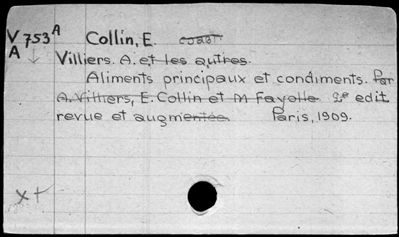 V 753 A Collin, E. coaut
A Villiers. A. et les autres.
Aliments principaux et condiments. Par
A. Villiers, E. Collin et M Fayolle 2e edit
revue et augmentée. Paris, 1909.
x+